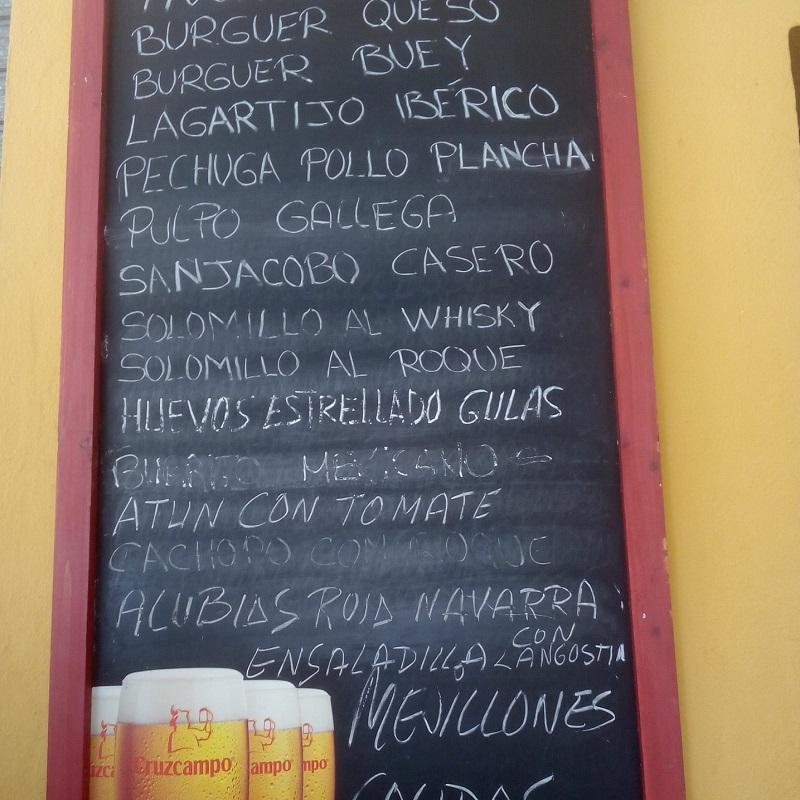 BURGUER QUESO
BURGUER BUEY
LAGARTIJO IBÉRICO
PECHUGA POLLO PLANCHA
PULPO GALLEGA
SANJACOBO CASERO
SOLOMILLO AL WHISKY
SOLOMILLO AL ROQUE
HUEVOS ESTRELLADO GULAS
BURRITO MEXICANO
ATUN CON TOMATE
CACHOPO CON ROQUE
ALUBIAS ROJA NAVARRA
CON
ENSALADILLA LANGOSTIN
MEJILLONES
Cruzcampo
ampo
mpo